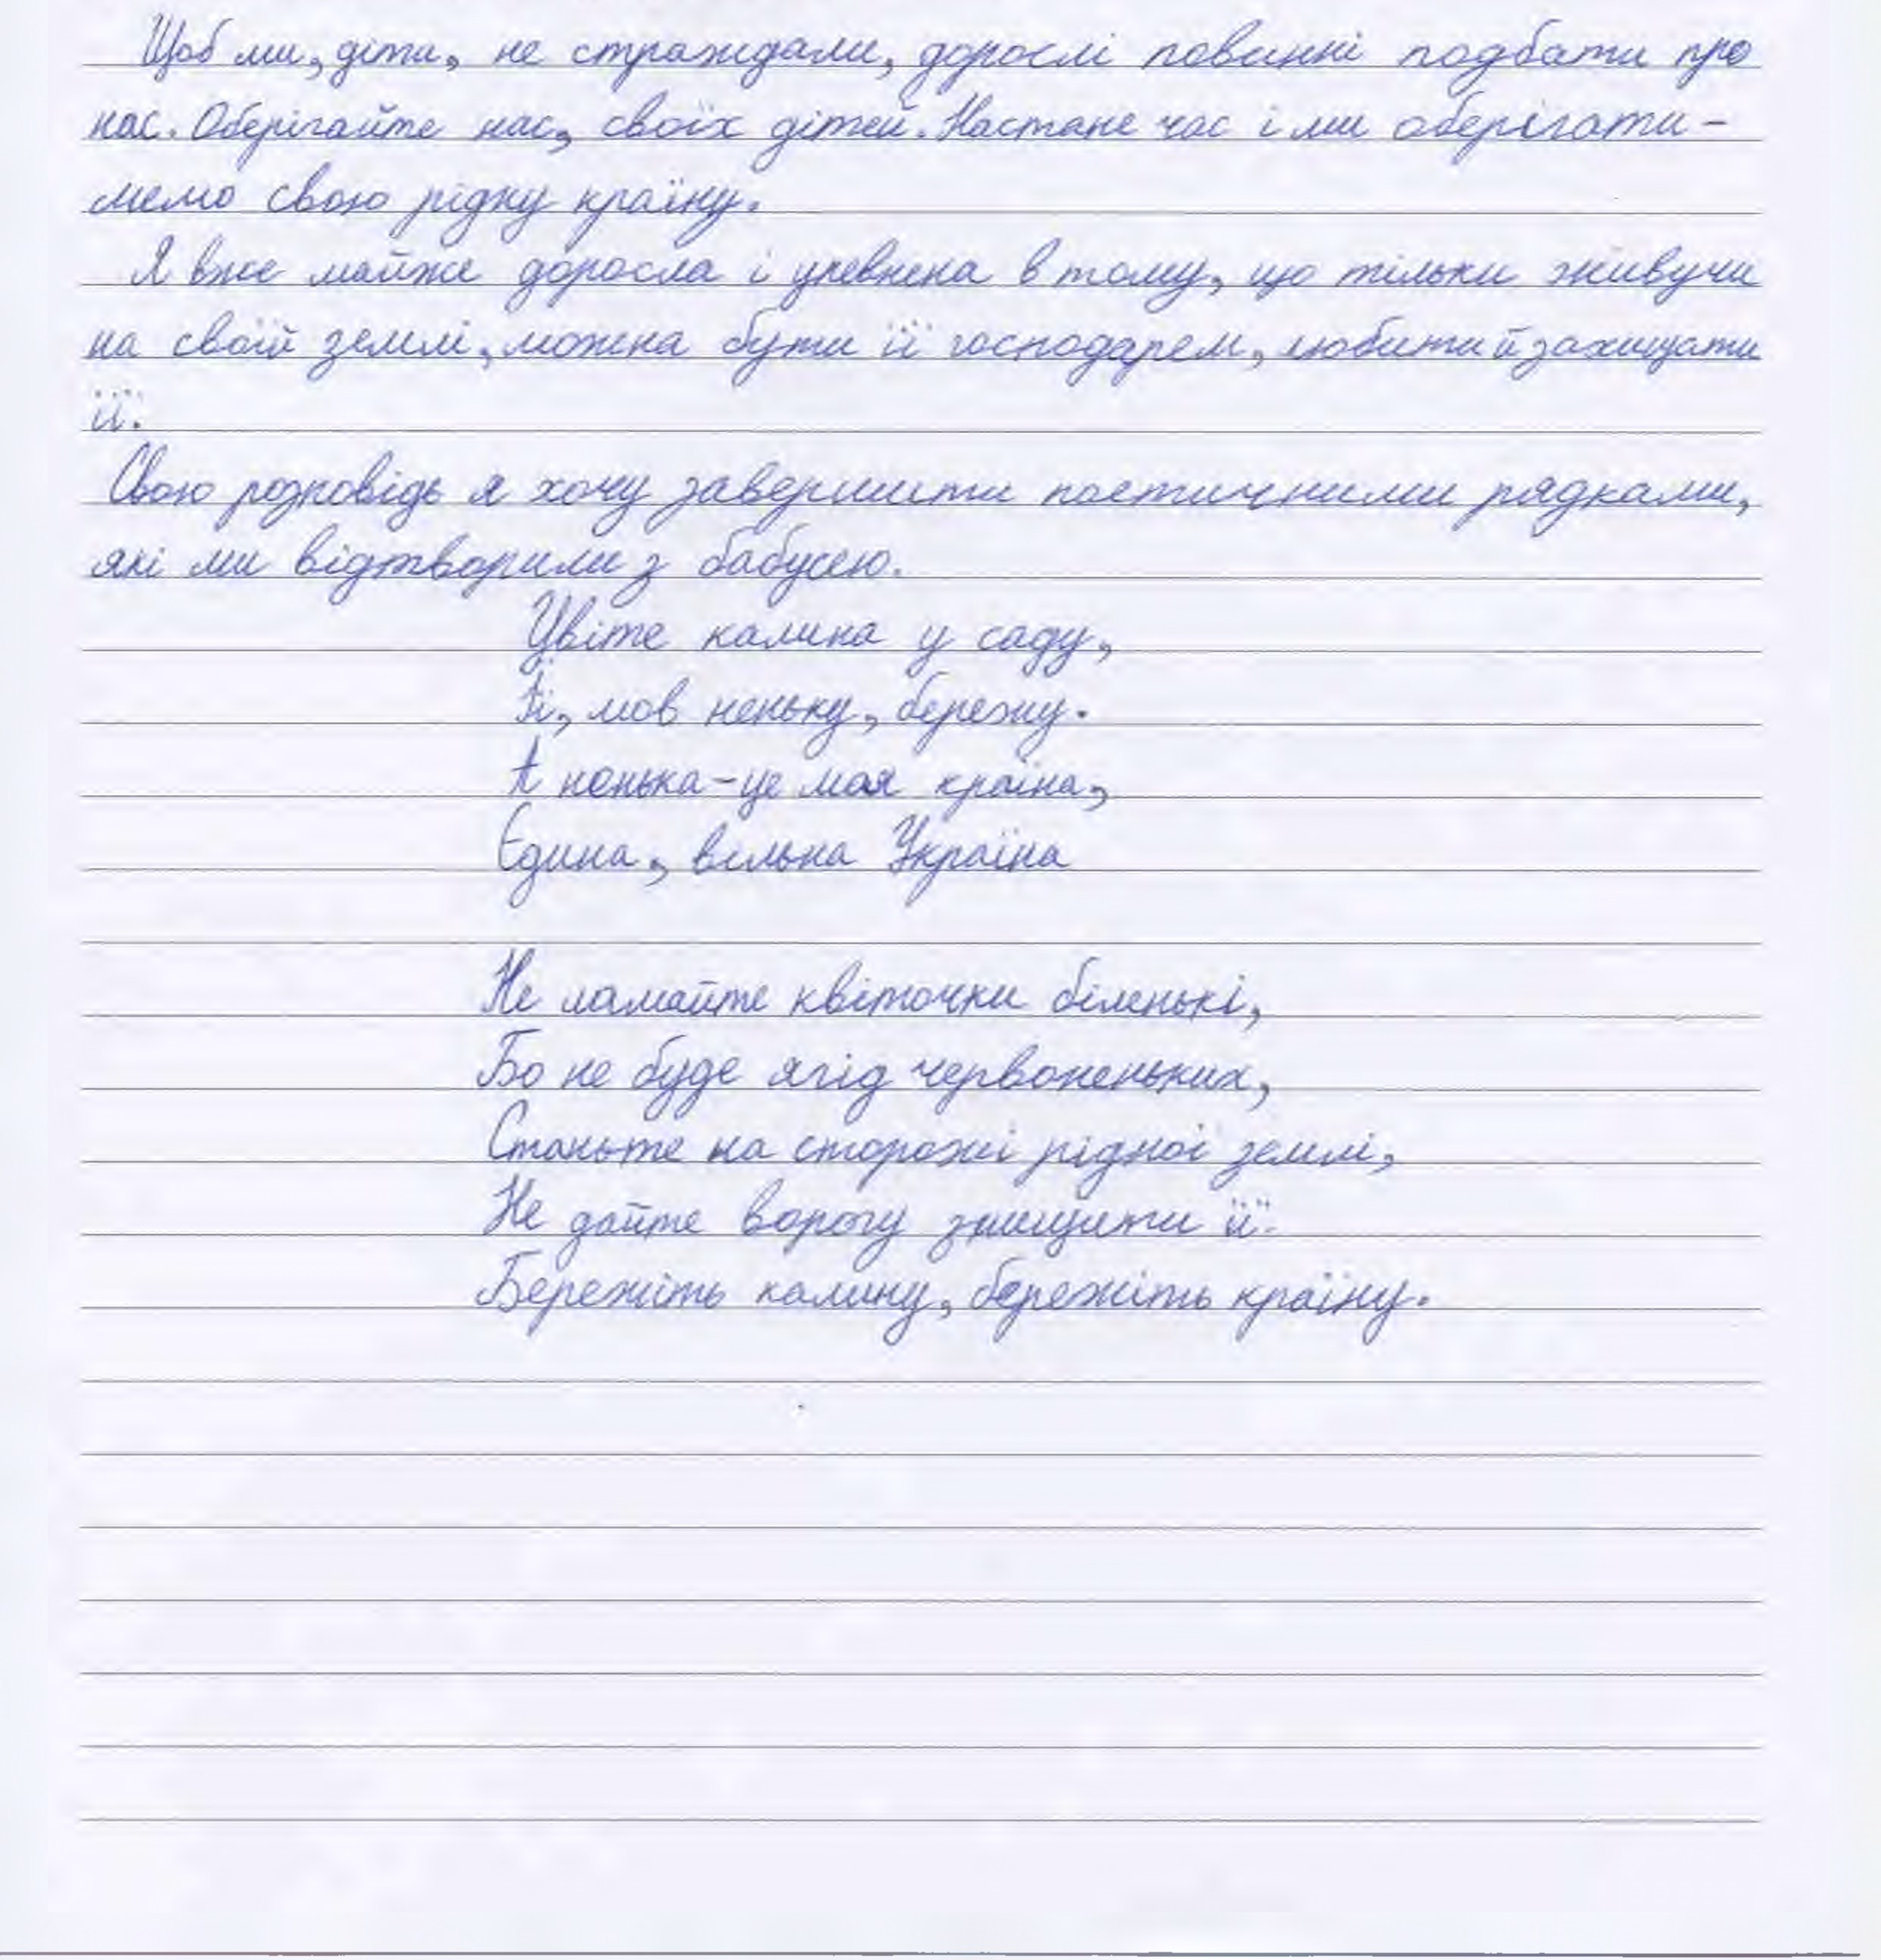 Щоб ми, діти, не страждали, дорослі повинні подбати про
нас. Оберігайте нас, своїх дітей. Настане час і ми оберігати-
мемо свою рідну країну.
Я вже майже доросла і упевнена в тому, що тільки живучи
на своїй землі, можна бути її господарем, любити й захищати
її.
Свою розповідь я хочу завершити поетичними рядками,
які ми відтворили з бабусею.
Цвіте калина у саду,
Її, мов неньку, бережу.
А ненька-це моя країна,
Єдина, вільна Україна
Не ламайте квіточки біленькі,
Бо не буде ягід червоненьких,
Станьте на сторожі рідної землі,
Не дайте ворогу знищити її.
Бережіть калину, бережіть країну.